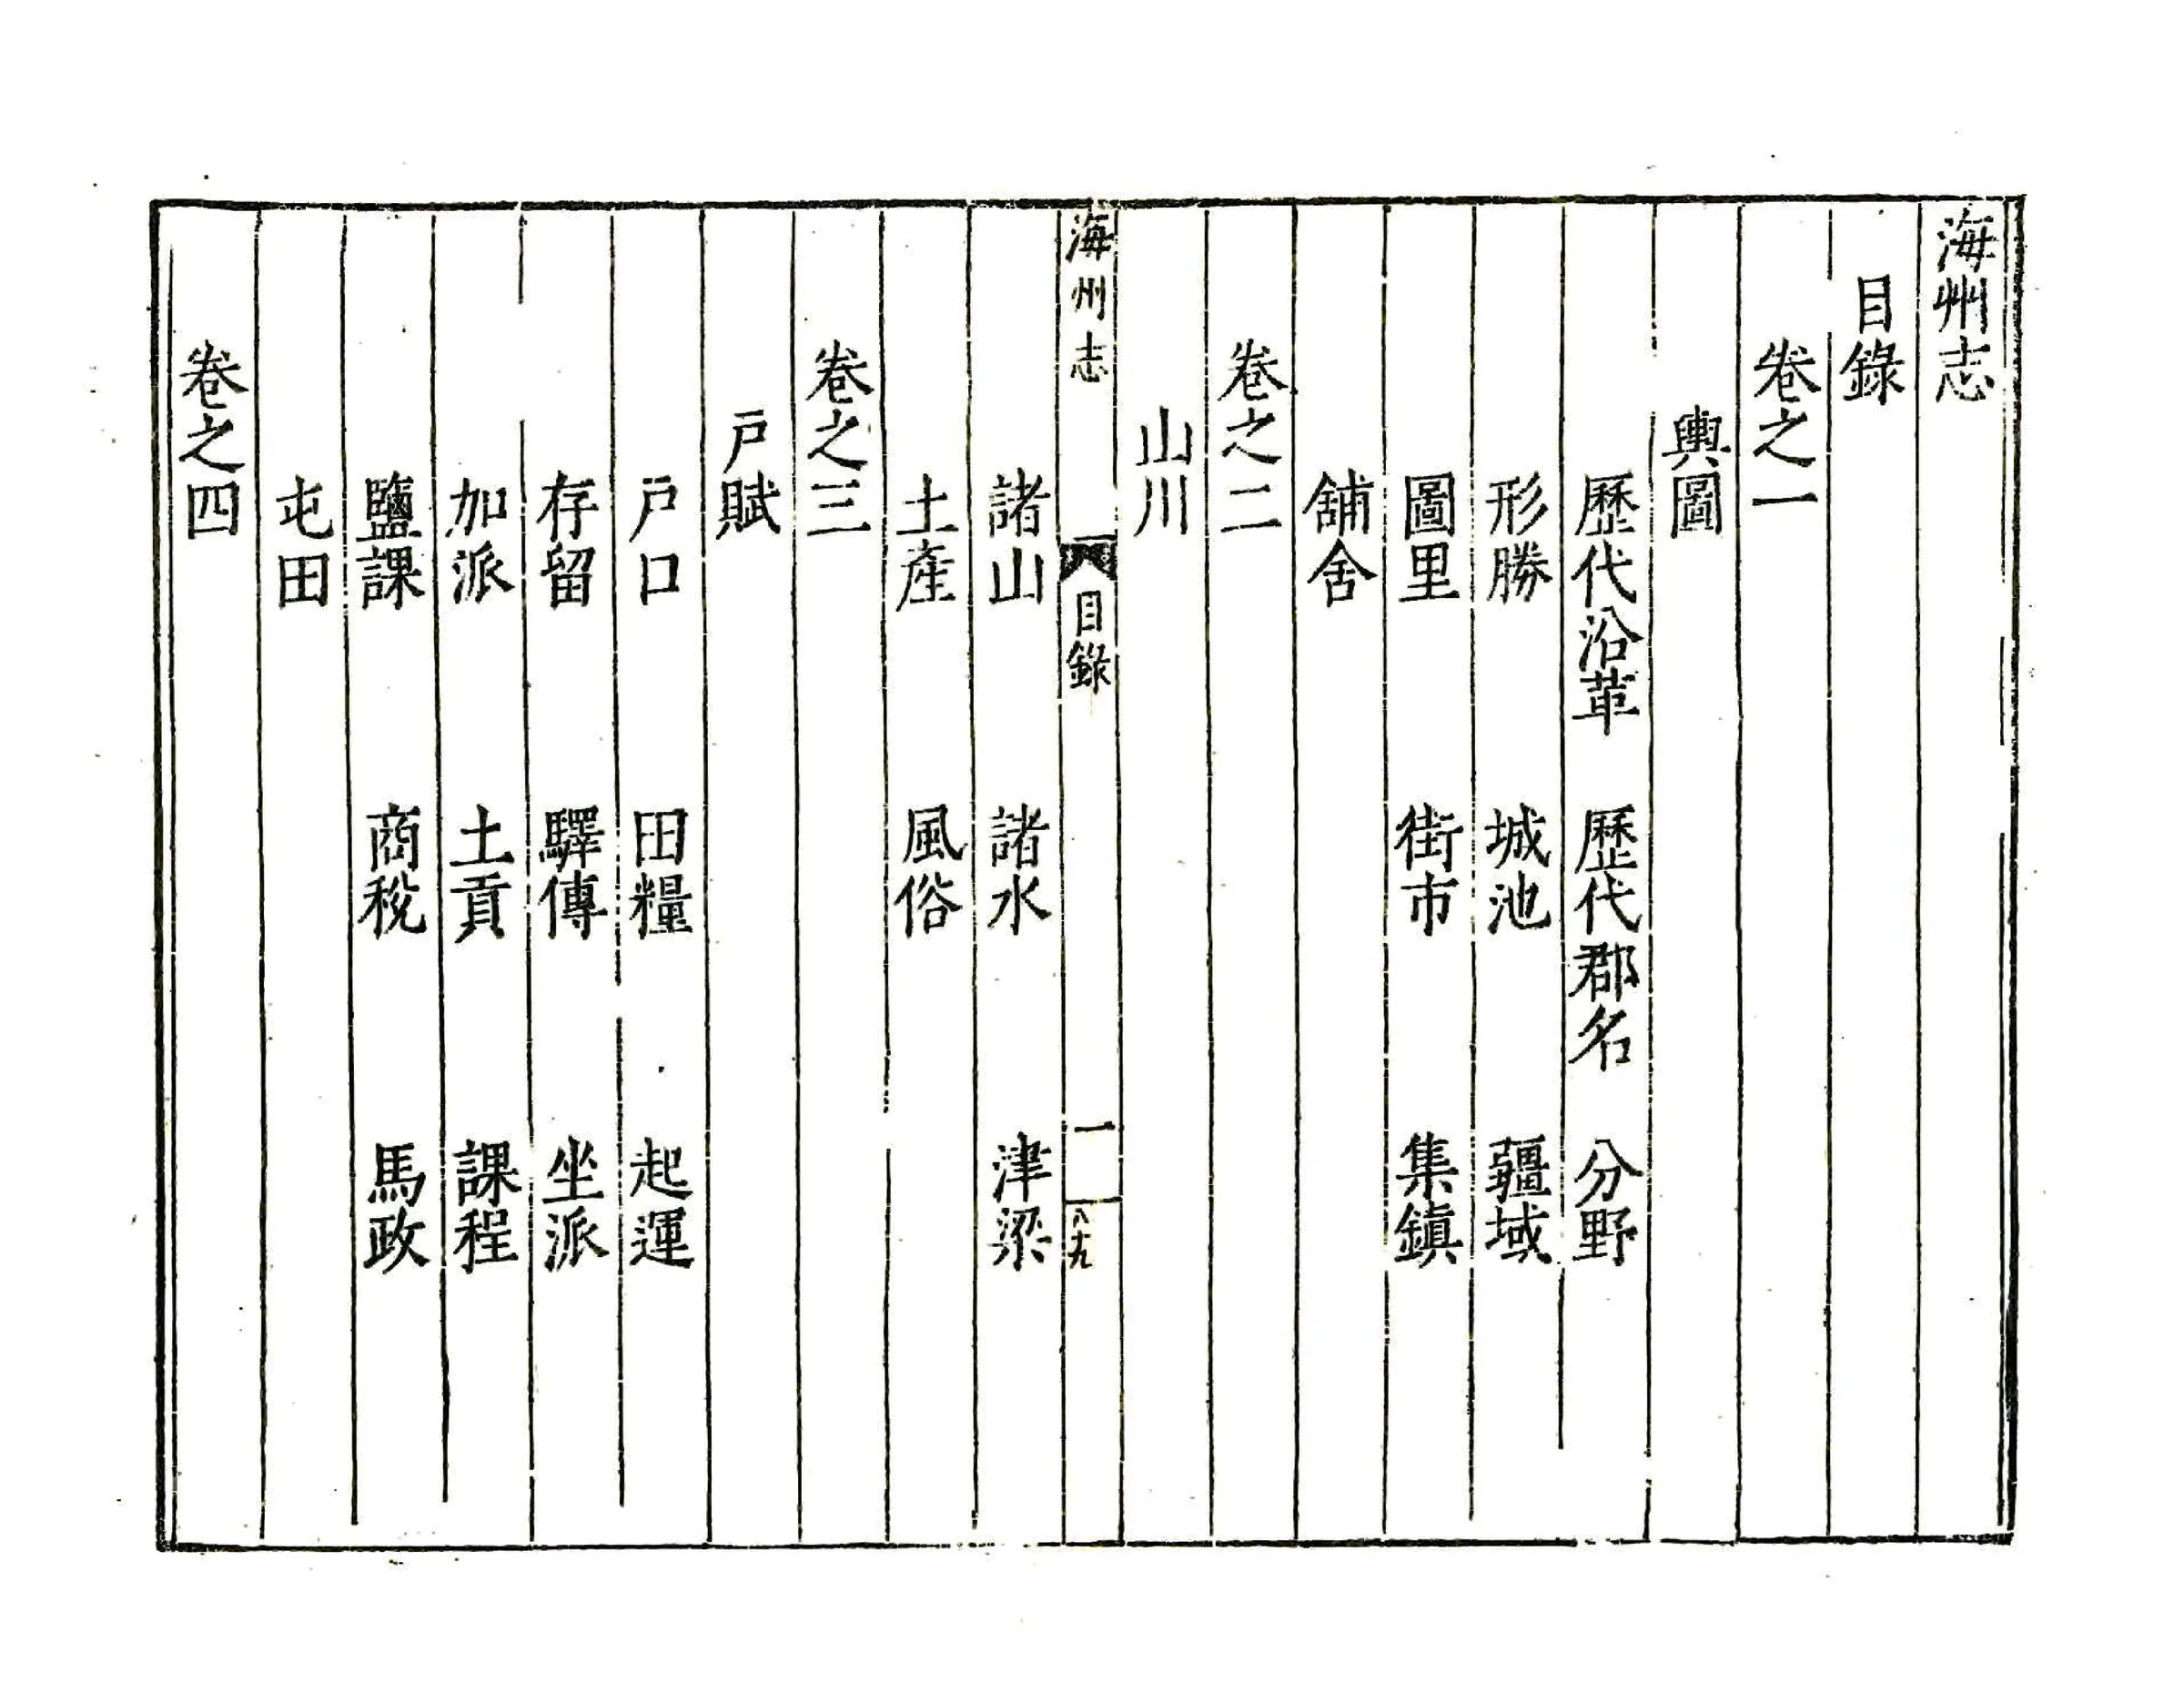 海州志
目錄
卷之一
輿圖
歷代沿革 歷代郡名 分野
形勝 城池 疆域
圖里 街市 集鎮
舖舍
卷之二
山川
海州志 目錄 一 八九
諸山 諸水 津梁
土產 風俗
卷之三
戶賦
戶口 田糧 起運
存留 驛傳 坐派
加派 土貢 課程
鹽課 商稅 馬政
屯田
卷之四